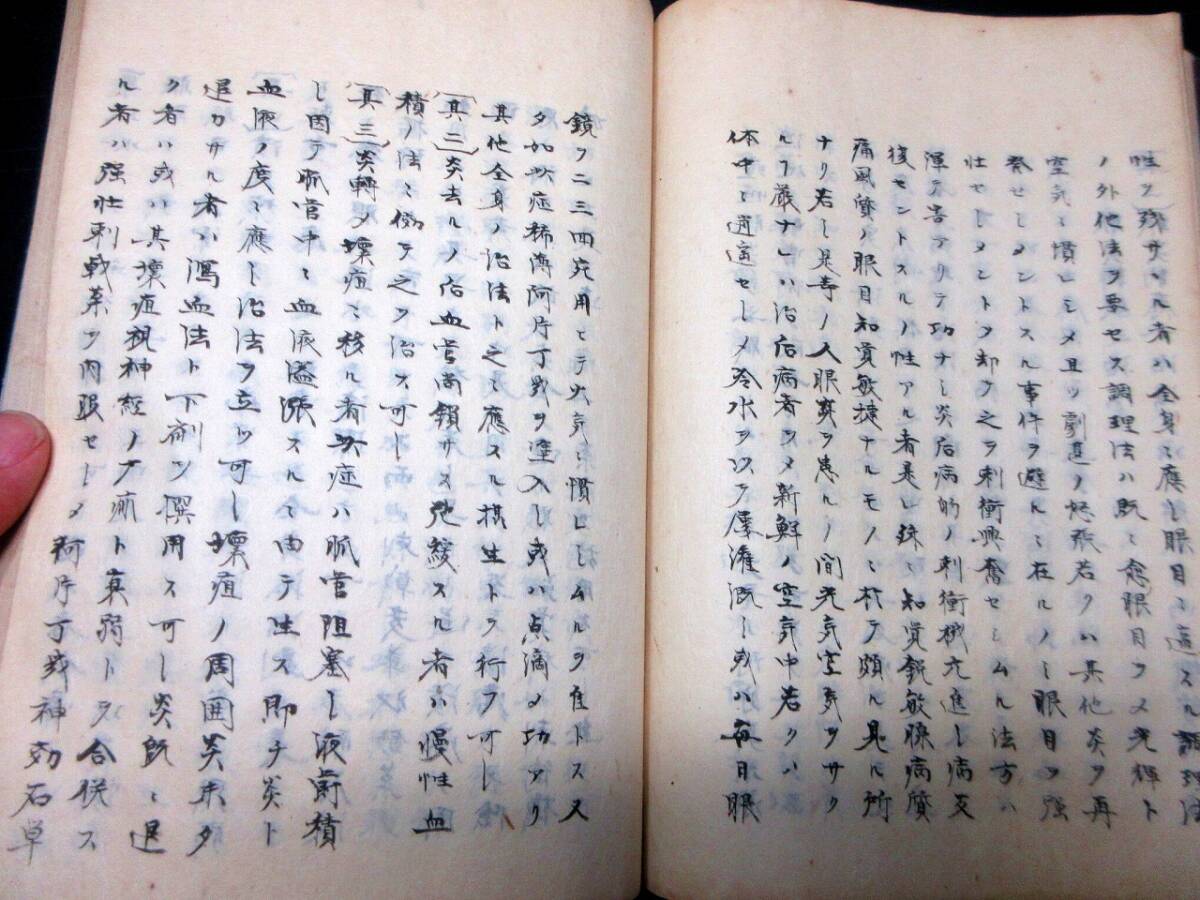 性ヲ残サヾル者ハ全身ニ應シ眼目ニ適スル調理法
ノ外他法ヲ要セス調理法ハ既ニ愈眼目ヲメ光輝ト
空気ニ慣レシメ且ツ劇進ノ怒張若クハ其他炎ヲ再
発セシメントスル事件ヲ避ルニ在ルノミ眼目ヲ強
壮セシメントヲ却ク之ヲ刺衝興奮セシムル法方ハ
渾テ害アリテ功ナシ炎后病的ノ刺衝機亢進シ病支
復セントスルノ性アル者是レ殊ニ知覚鋭敏腺病質
痛風質ノ眼目知覚敏捷ナルモノニ於テ頗ル見ル所
ナリ若シ是寺ノ人眼炎ヲ患ルノ間光気空気ヲサク
ルヿ厳ナレハ治后病者ヲメ新鮮ノ空気中若クハ
体中ニ逍遥セシメ冷水ヲ以テ屡灌漑シ或ハ毎日眼
鏡ヲ二三四宛用ヒテ火気ニ慣レシムルヲ佳トス又
タ如此症稀薄阿片丁幾ヲ塗入シ或ハ点滴メ功アリ
其他全身ノ治法ト之ニ應スル摂生トヲ行フ可シ
其二炎去ルノ后血管尚鎖サス弛緩スル者ハ慢性血
積ノ法ニ倣テ之ヲ治ス可シ
其三炎轉メ壊疽ニ移ル者此症ハ脈管阻塞シ液蓄積
シ因テ脈管中ニ血液溢漲スルニ由テ生ス即チ炎ト
血液ノ度ニ應シ治法ヲ立ツ可シ壊疽ノ周囲炎未タ
退カサル者ハ瀉血法ト下剤ヲ撰用ス可シ炎既ニ退
ク者ハ或ハ其壊疽視神経ノ不痲ト真弱トヲ合併ス
ル者ハ強壮刺戟薬ヲ内服セシメ阿片丁幾神効石草